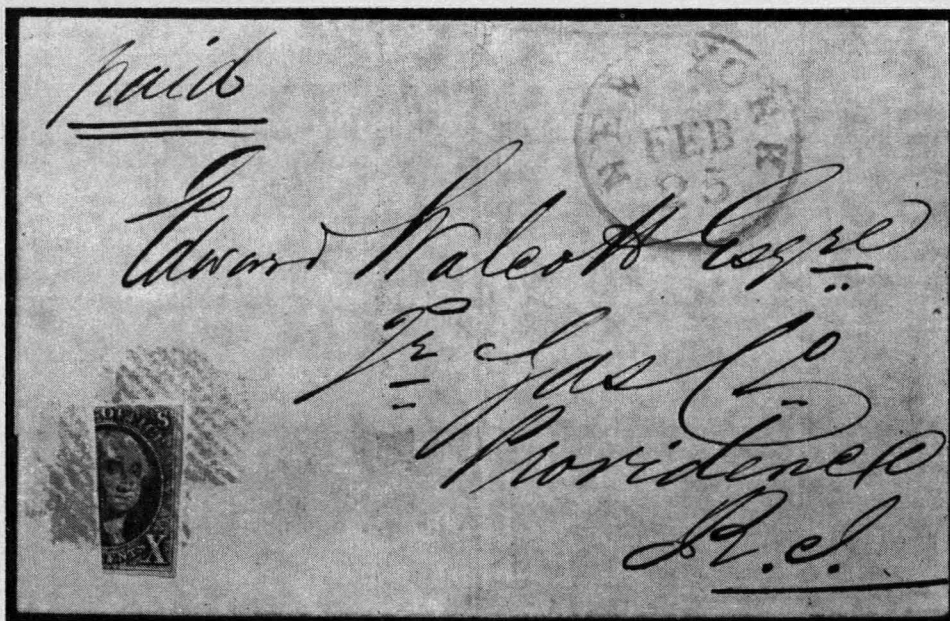 paid
NEW YORK
FEB
25
Edward Walcott Esqre
Tr Gas Co
Providence
R.I.
X